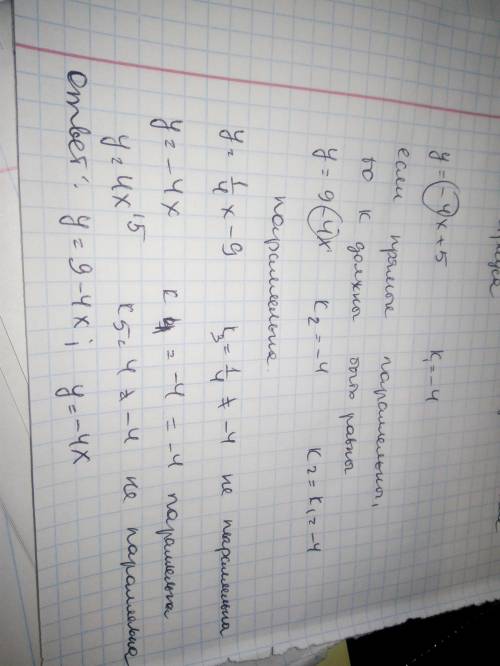 y = -4x + 5   k₁ = -4
если прямые параллельны,
то k должны быть равны
y = 9 - 4x   k₂ = -4   k₂ = k₁ = -4
параллельна.
y = 1/4 x - 9   k₃ = 1/4 ≠ -4 не параллельна
y = -4x   k₄ = -4 = -4 параллельна
y = 4x 15   k5 = 4 ≠ -4 не параллельна
Ответ: y = 9 - 4x; y = -4x